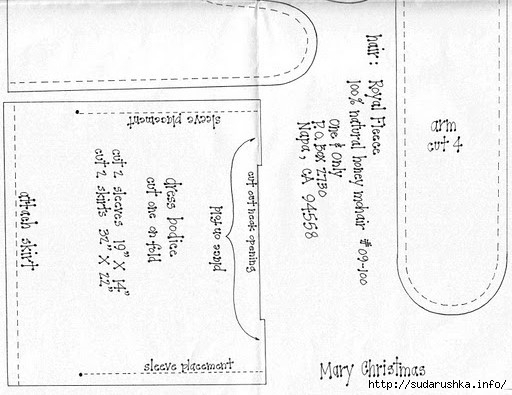 hair: Royal Fleece
100% natural honey mohair #09-100
One & Only
P.O. Box 2730
Napa, CA 94558
arm
cut 4
sleeve placement
cut out neck opening
place on fold
dress bodice
cut one on fold
cut 2 sleeves 19" X 14"
cut 2 skirts 32" X 22"
attach skirt
sleeve placement
Mary Christmas
http://sudarushka.info/